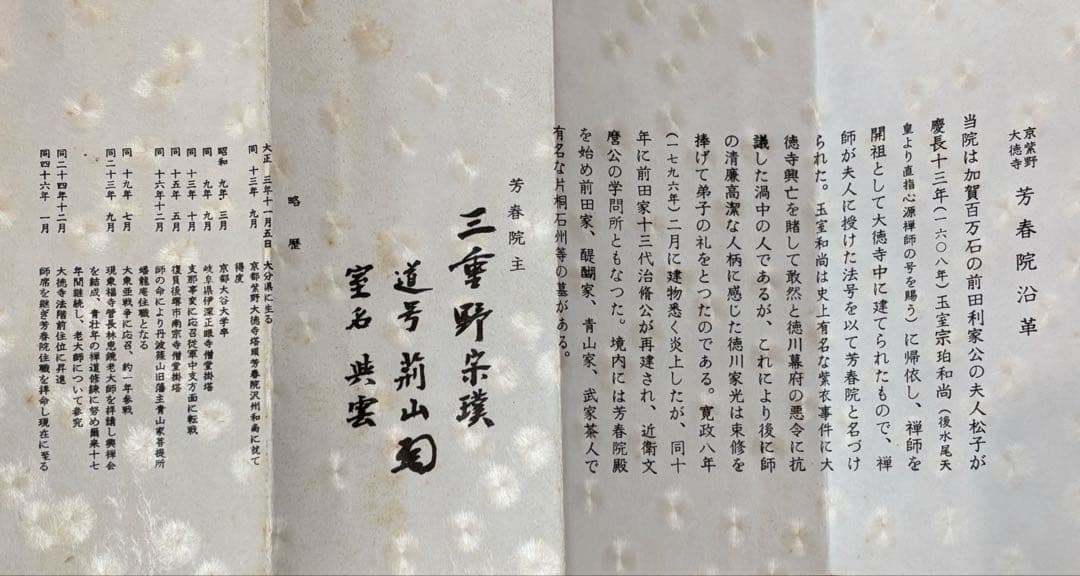 京紫野
大徳寺 芳春院沿革
当院は加賀百万石の前田利家公の夫人松子が
慶長十三年（一六〇八年）玉室宗珀和尚（後水尾天
皇より直指心源禅師の号を賜う）に帰依し、禅師を
開祖として大徳寺中に建てられたもので、禅
師が夫人に授けた法号を以て芳春院と名づけ
られた。玉室和尚は史上有名な紫衣事件に大
徳寺興亡を賭して敢然と徳川幕府の悪令に抗
議した渦中の人であるが、これにより後に師
の清廉高潔な人柄に感じた徳川家光は束修を
捧げて弟子の礼をとったのである。寛政八年
（一七九六年）二月に建物悉く炎上したが、同十
年に前田家十三代治脩公が再建され、近衛文
麿公の学問所ともなつた。境内には芳春院殿
を始め前田家、醍醐家、青山家、武家茶人で
有名な片桐石州等の墓がある。
芳春院主
三重野宗璞
道号 荊山
室名 興雲
略歴
大正三年十一月五日 大分県に生る
同十三年九月 京都紫野大徳寺塔頭芳春院沢州和尚に就て
得度
昭和九年三月 京都大谷大学卒
同九年九月 岐阜県伊深正眼寺僧堂掛塔
同十三年十月 支那事変に応召従軍中支方面に転戦
同十五年五月 復員後堺市南宗寺僧堂掛塔
同十六年十二月 師の命により丹波篠山旧藩主青山家菩提所
蟠龍庵住職となる
同十九年七月 大東亜戦争に応召、約一年参戦
同二十三年九月 現東福寺管長林恵鏡老大師を拝請し興禅会
を結成、青壮年の禅道修錬に努め爾来十七
年間継続し、老大師について参究
同二十四年十二月 大徳寺法階前住位に昇進
同四十六年一月 師席を継ぎ芳春院住職を拝命し現在に至る